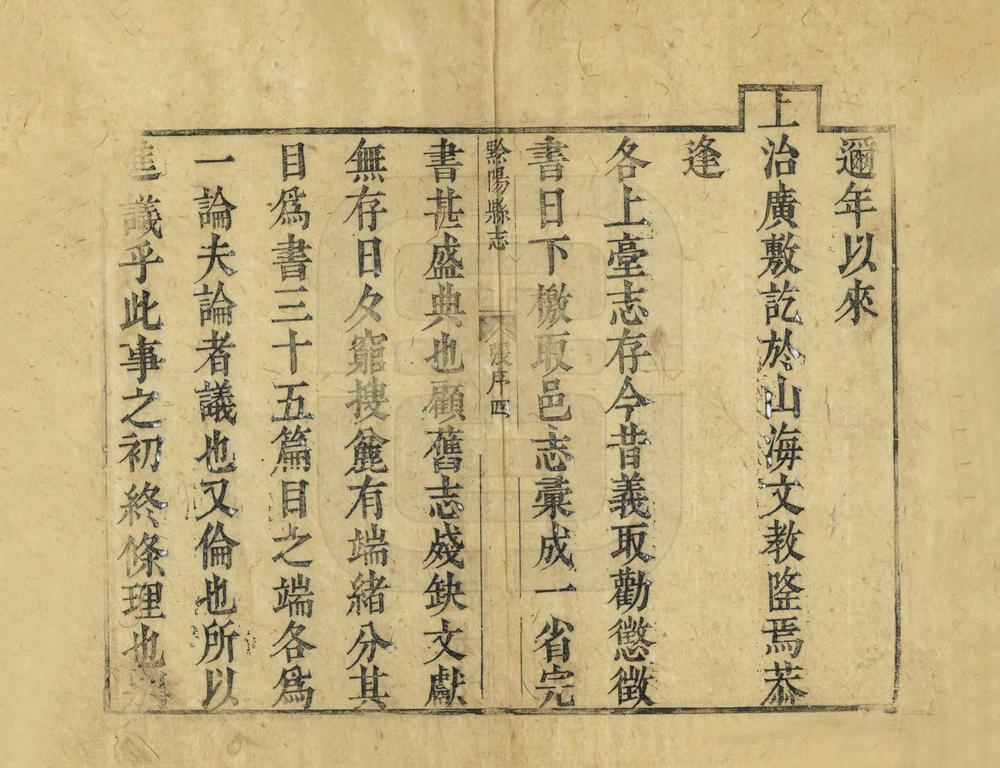 邇年以來
上治廣敷訖於山海文教隆焉恭
逢
各上臺志存今昔義取勸懲徵
書日下檄取邑志彙成一省完
黔陽縣志 張序四
書甚盛典也顧舊志殘缺文獻
無存日夕窮搜麄有端緒分其
目爲書三十五篇目之端各爲
一論夫論者議也又倫也所以
議乎此事之初終條理也